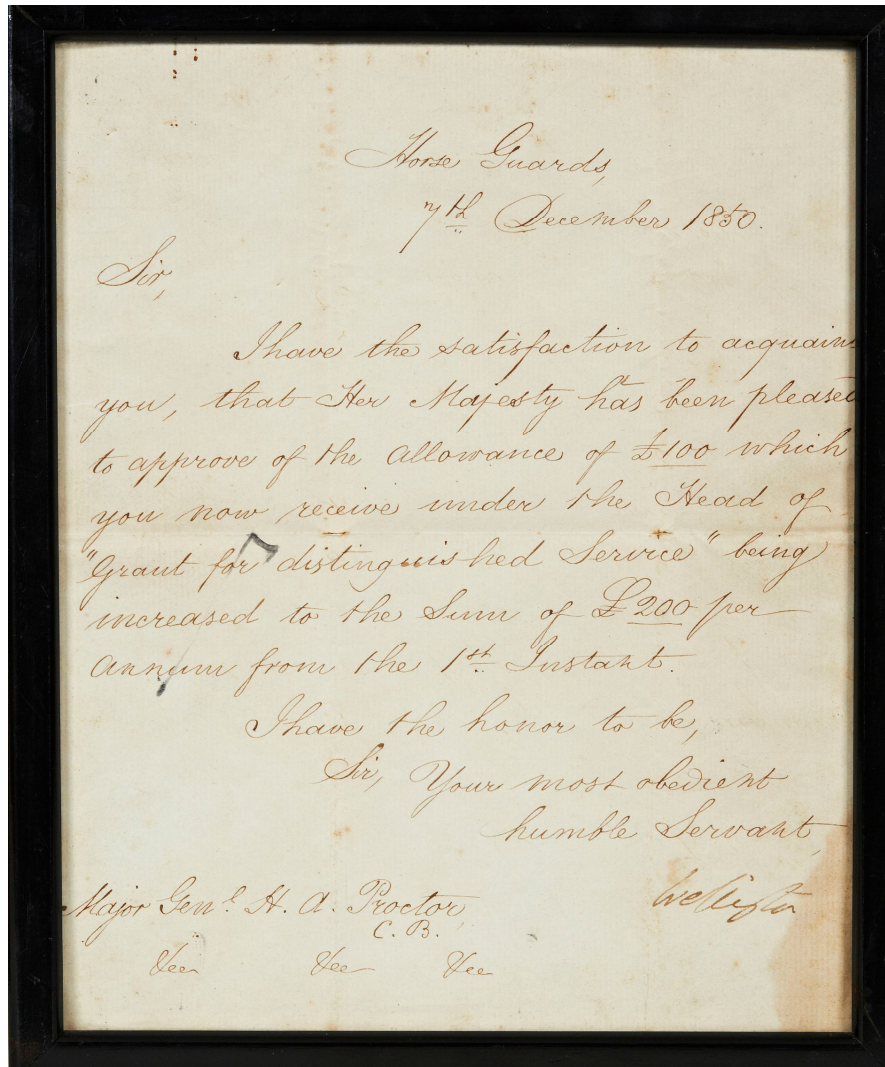 Horse Guards,
7th December 1850.
Sir,
I have the satisfaction to acquaint
you, that Her Majesty has been pleased
to approve of the Allowance of £100 which
you now receive under the Head of
"Grant for distinguished Service" being
increased to the Sum of £200 per
Annum from the 1st Instant.
I have the honor to be,
Sir, Your most obedient
humble Servant,
Wellington
Major Genl. H. A. Proctor,
C. B.